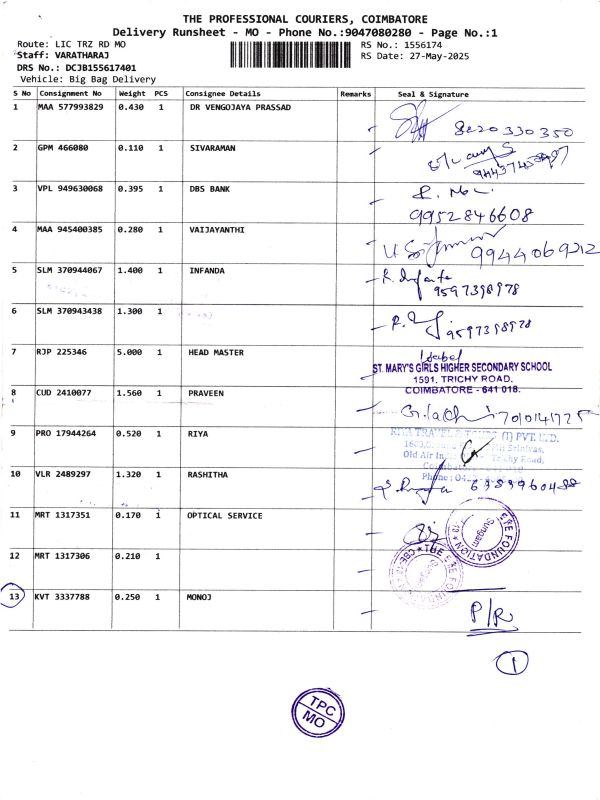 THE PROFESSIONAL COURIERS, COIMBATORE
Delivery Runsheet - MO - Phone No.:9047080280 - Page No.:1
Route: LIC TRZ RD MO
RS No.: 1556174
Staff: VARATHARAJ
RS Date: 27-May-2025
DRS No.: DCJB155617401
Vehicle: Big Bag Delivery
S No Consignment No Weight PCS Consignee Details Remarks Seal & Signature
1 MAA 577993829 0.430 1 DR VENGOJAYA PRASSAD 8220330350
2 GPM 466080 0.110 1 SIVARAMAN
3 VPL 949630068 0.395 1 DBS BANK
9952846608
4 MAA 945400385 0.280 1 VAIJAYANTHI
9944069212
5 SLM 370944067 1.400 1 INFANDA
9597398978
6 SLM 370943438 1.300 1
9597398978
7 RJP 225346 5.000 1 HEAD MASTER
ST. MARY'S GIRLS HIGHER SECONDARY SCHOOL
1591, TRICHY ROAD,
COIMBATORE - 641 018.
8 CUD 2410077 1.560 1 PRAVEEN
7010141725
9 PRO 17944264 0.520 1 RIYA
RIYA TRAVEL & TOURS (I) PVT. LTD.
Old Air Trichy Road,
Phone:
10 VLR 2489297 1.320 1 RASHITHA
11 MRT 1317351 0.170 1 OPTICAL SERVICE
FOUNDATION
Sungam
12 MRT 1317306 0.210 1
13 KVT 3337788 0.250 1 MONOJ
P/R
1
TPC
MO